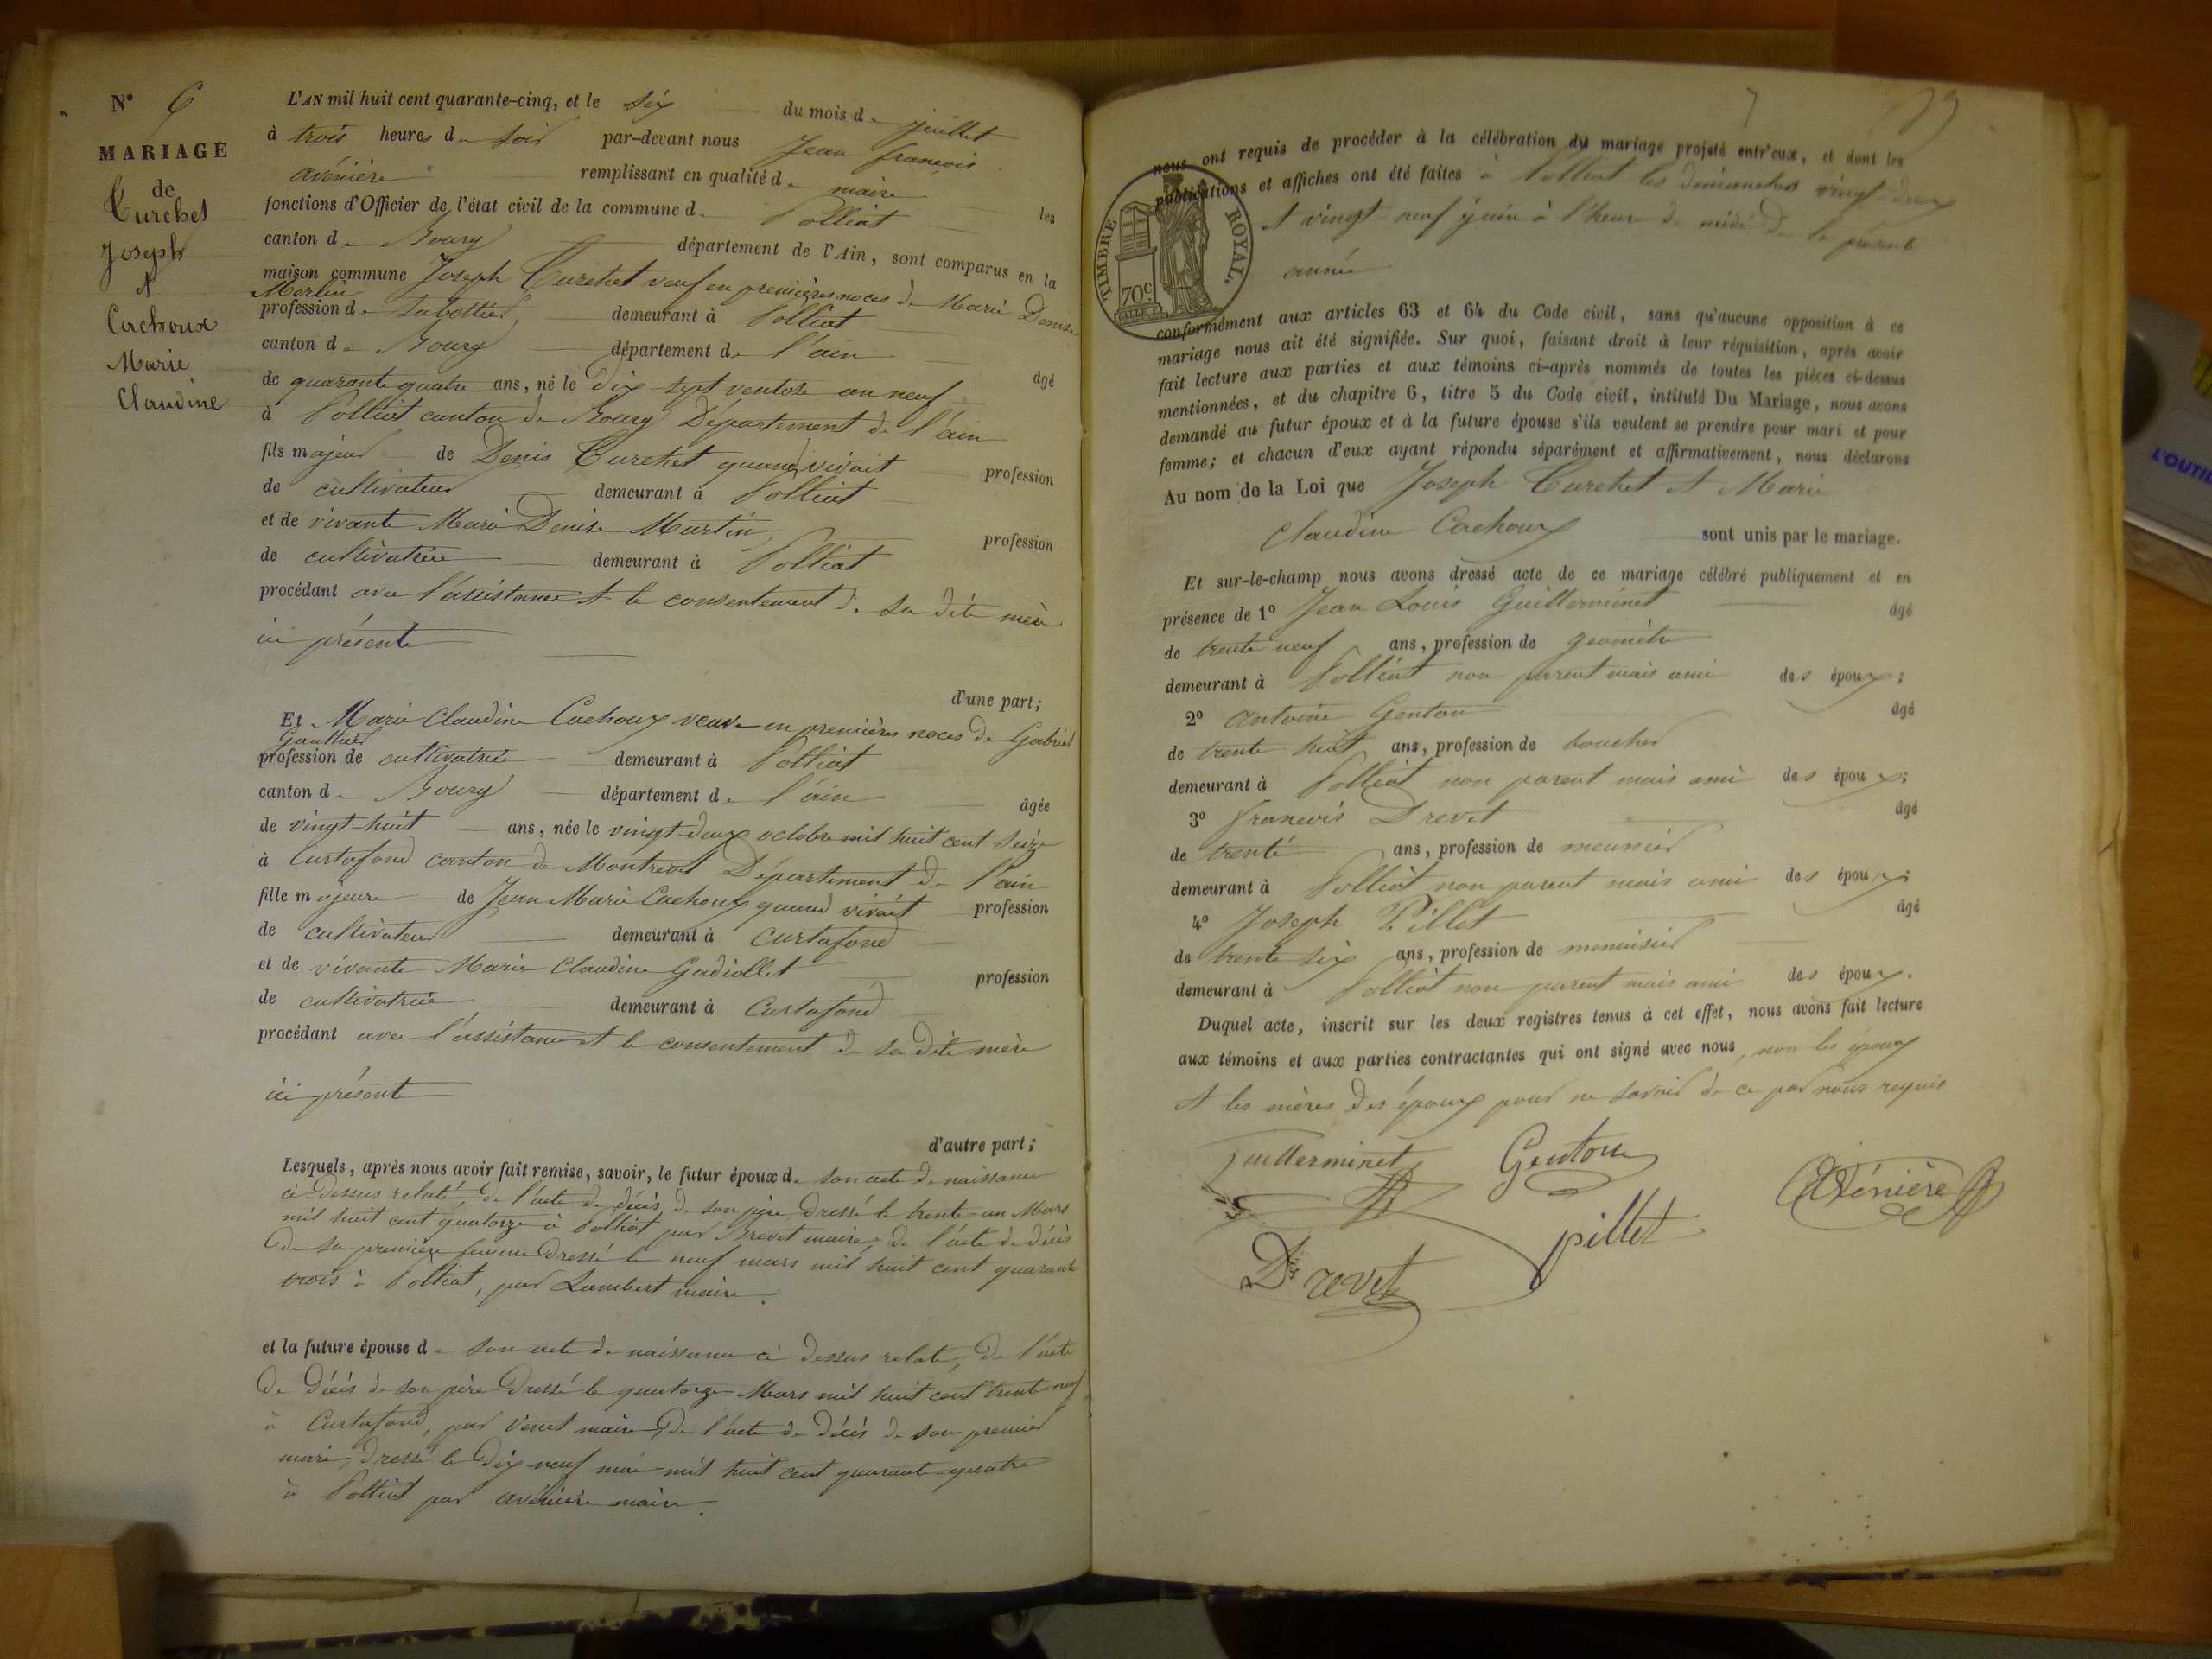 N° 6
MARIAGE
de
Curchet
Joseph
et
Cachoux
Marie
Claudine
L'AN mil huit cent quarante-cinq, et le six du mois de juillet
à trois heures du soir par-devant nous Jean françois
avénière remplissant en qualité de maire les
fonctions d'Officier de l'état civil de la commune de Polliat
canton de Bourg département de l'Ain, sont comparus en la
maison commune Joseph Curchet veuf en premières noces de Marie Denise
Merlin
profession de sabottier, demeurant à Polliat
canton de Bourg département de l'ain âgé
de quarante quatre ans, né le dix-sept ventose an neuf
à Polliat canton de Bourg Département de l'ain
fils majeur de Denis Curchet quand vivait profession
de cultivateur demeurant à Polliat
et de vivante Marie Denise Martin, profession
de cultivatrice demeurant à Polliat
procédant avec l'assistance et le consentement de sa dite mère
ici présente
d'une part;
Et Marie Claudine Cachoux veuve en premières noces de Gabriel
Gauthier
profession de cultivatrice demeurant à Polliat
canton de Bourg département de l'ain âgée
de vingt-huit ans, née le vingt-deux octobre mil huit cent seize
à Curtafond canton de Montrevel Département de l'ain
fille majeure de Jean Marie Cachoux quand vivait profession
de cultivateur demeurant à Curtafond
et de vivante Marie Claudine Gadiollet profession
de cultivatrice demeurant à Curtafond
procédant avec l'assistance et le consentement de sa dite mère
ici présente
d'autre part;
Lesquels, après nous avoir fait remise, savoir, le futur époux de son acte de naissance
ci-dessus relaté, de l'acte de décès de son père dressé le trente-un Mars
mil huit cent quatorze à Polliat par Brevet maire, de l'acte de décès
de sa première femme dressé le neuf mars mil huit cent quarante
trois à Polliat, par Lambert maire.
et la future épouse de son acte de naissance ci dessus relaté, de l'acte
de décès de son père dressé le quatorze Mars mil huit cent trente-neuf
à Curtafond, par Venet maire, de l'acte de décès de son premier
mari, dressé le dix-neuf mai mil huit cent quarante-quatre
à Polliat par avénière maire.
nous ont requis de procéder à la célébration du mariage projeté entr'eux, et dont les
publications et affiches ont été faites à Polliat les dimanches vingt-deux
et vingt-neuf juin à l'heure de midi de la présente
année
TIMBRE ROYAL.
70c
conformément aux articles 63 et 64 du Code civil, sans qu'aucune opposition à ce
mariage nous ait été signifiée. Sur quoi, faisant droit à leur réquisition, après avoir
fait lecture aux parties et aux témoins ci-après nommés de toutes les pièces ci-dessus
mentionnées, et du chapitre 6, titre 5 du Code civil, intitulé Du Mariage, nous avons
demandé au futur époux et à la future épouse s'ils veulent se prendre pour mari et pour
femme; et chacun d'eux ayant répondu séparément et affirmativement, nous déclarons
Au nom de la Loi que Joseph Curchet et Marie
Claudine Cachoux sont unis par le mariage.
Et sur-le-champ nous avons dressé acte de ce mariage célébré publiquement et en
présence de 1° Jean Louis Guillerminet âgé
de trente neuf ans, profession de geomètre
demeurant à Polliat non parent mais ami des époux;
2° antoine Genton âgé
de trente huit ans, profession de boucher
demeurant à Polliat non parent mais ami des époux;
3° francois Drevet âgé
de trente ans, profession de meunier
demeurant à Polliat non parent mais ami des époux;
4° Joseph Pillet âgé
de trente six ans, profession de menuisier
demeurant à Polliat non parent mais ami des époux.
Duquel acte, inscrit sur les deux registres tenus à cet effet, nous avons fait lecture
aux témoins et aux parties contractantes qui ont signé avec nous, non les époux
et les mères des époux pour ne savoir de ce par nous requis
Guillerminet Genton Avénière
Drevet pillet
L'OUTIL